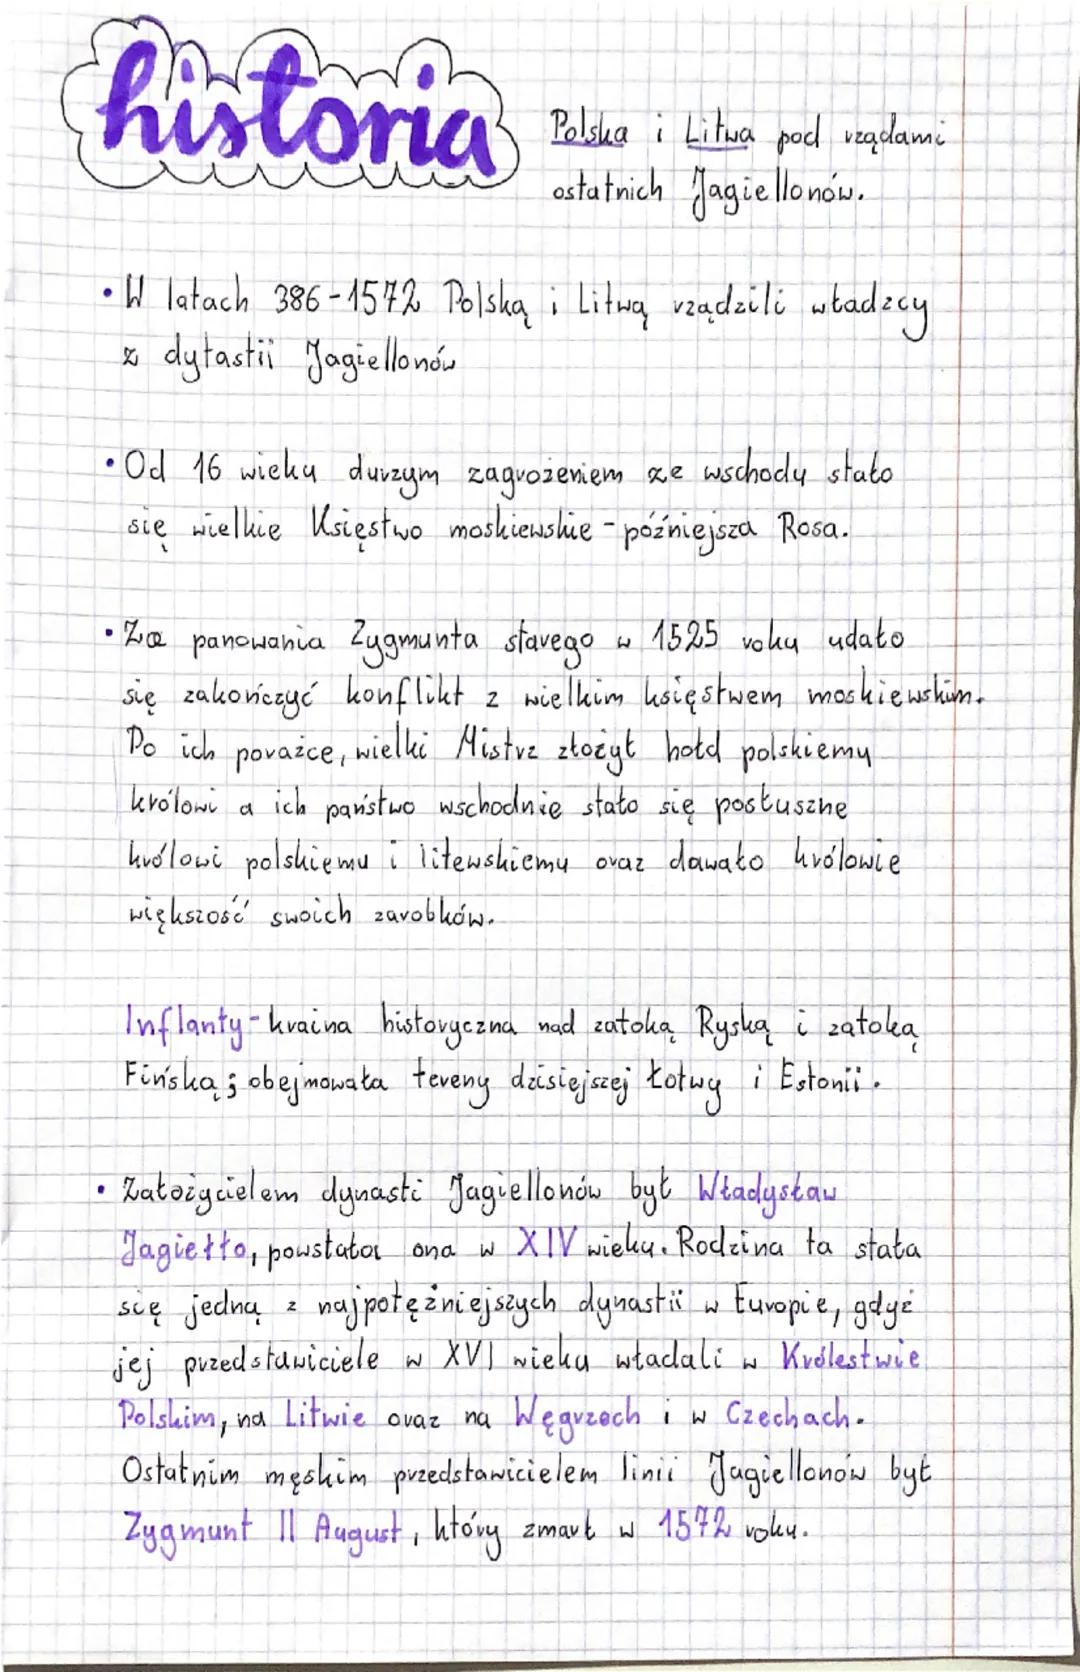 historia
Polska i Litwa pod rządami
ostatnich Jagiellonów.
• W latach 386-1572 Polską i Litwą rządzili władzcy
z dytastii Jagiellonów
• Od 16 wieku durzym zagrożeniem ze wschodu stało
się wielkie Księstwo moskiewskie - późniejsza Rosa.
• Za panowania Zygmunta starego w 1525 roku udało
się zakończyć konflikt z wielkim księstwem moskiewskim.
Po ich porażce, wielki Mistrz złożył hołd polskiemu
królowi a ich państwo wschodnie stało się posłuszne
królowi polskiemu i litewskiemu oraz dawało królowie
większość swoich zarobków.
Inflanty - kraina historyczna nad zatoką Ryską i zatoką
Fińską; obejmowała tereny dzisiejszej Łotwy i Estonii.
• Założycielem dynasti Jagiellonów był Władysław
Jagiełło, powstała ona w XIV wieku. Rodzina ta stała
się jedną z najpotężniejszych dynastii w Europie, gdyż
jej przedstawiciele w XVI wieku władali w Królestwie
Polskim, na Litwie oraz na Węgrzech i w Czechach.
Ostatnim męskim przedstawicielem linii Jagiellonów był
Zygmunt II August, który zmarł w 1572 roku.